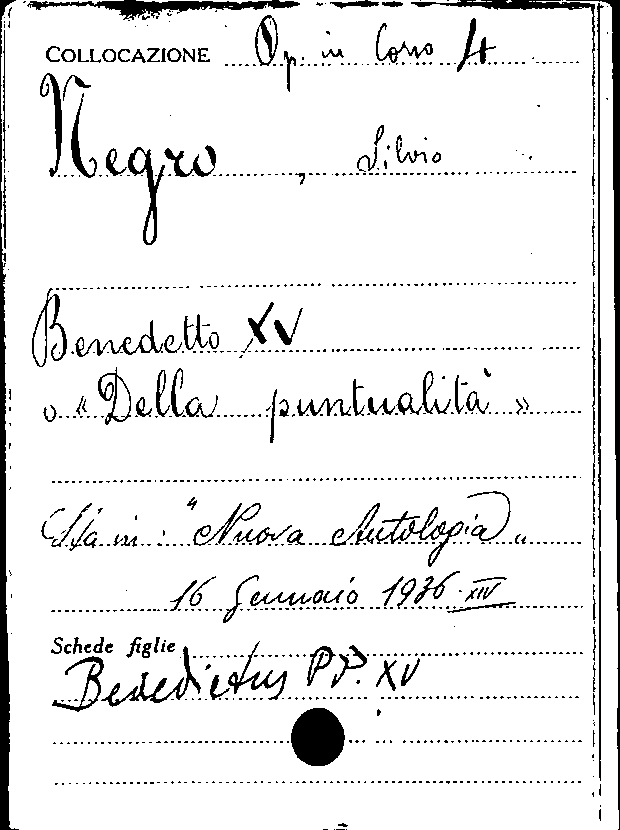 COLLOCAZIONE Op. in Corso 4
Negro, Silvio
Benedetto XV
o « Della puntualità »
Sta in : "Nuova Antologia„
16 Gennaio 1936·XIV
Schede figlie
Benedictus PP. XV